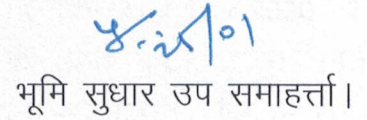 भूमि सुधार उप समाहर्त्ता।